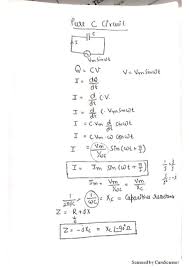 Pure C Circuit
C
I
Vm Sinωt
Q = CV
V = Vm Sinωt
I = dQ/dt
I = d/dt C.V
I = d/dt C. Vm Sinωt
I = C.Vm d/dt Sinωt
I = C.Vm ω Cosωt
I = Vm/(1/ωc) Sin(ωt + π/2)
I = Im Sin(ωt + π/2)
Im = Vm/(1/ωc) = Vm/Xc
(1/ωc) = Xc = Capacitive reactance
Z = R + jX
Z = -jXc = Xc∟-90°Ω
Scanned by CamScanner